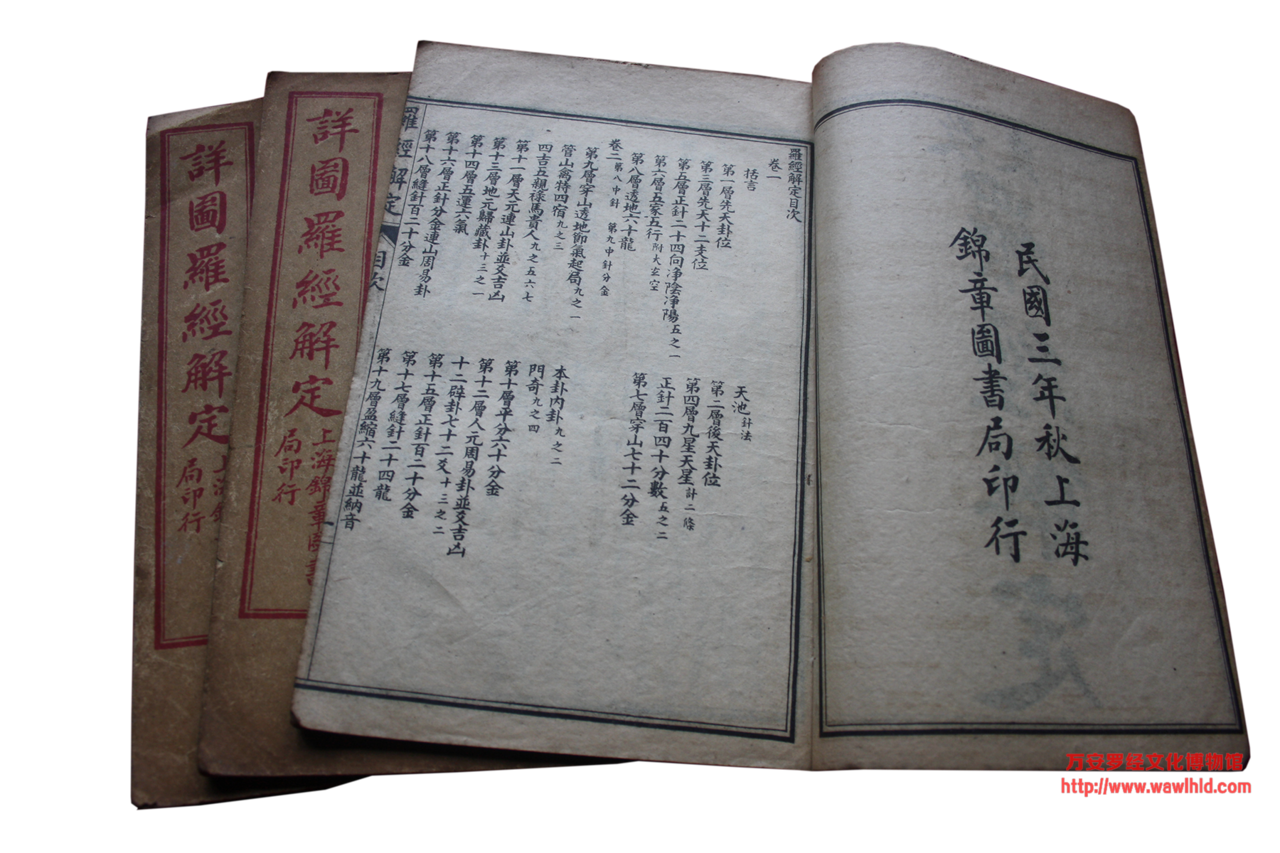 民國三年秋上海
錦章圖書局印行
羅經解定目次
卷一
括言
天池針法
第一層先天卦位
第二層後天卦位
第三層先天十二支位
第四層九星天星計二條
第五層正針二十四向净陰净陽五之一
正針二百四十分數五之二
第六層五家五行附大玄空
第七層穿山七十二分金
第八層透地六十龍
卷二第八中針 第九中針分金
第九層穿山透地節氣起局九之一
本卦内卦九之二
管山翁特四宿九之三
門奇九之四
四吉五親祿馬貴人九之五六七
第十層平分六十分金
第十一層天元連山卦並爻吉凶
第十二層人元周易卦並爻吉凶
第十三層地元歸藏卦十三之一
十二辟卦七十二爻十三之二
第十四層五運六氣
第十五層正針百二十分金
第十六層正針分金連山周易卦
第十七層縫針二十四龍
第十八層縫針百二十分金
第十九層盈縮六十龍並納音
羅經解定 目次
詳圖羅經解定
上海錦章圖書
局印行
詳圖羅經解定
上海錦
局印行
万安罗经文化博物馆
http://www.wawlhld.com